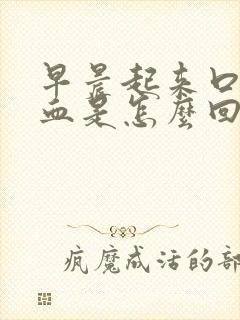 早晨起来口
血是怎麼回
疯魔成活的部